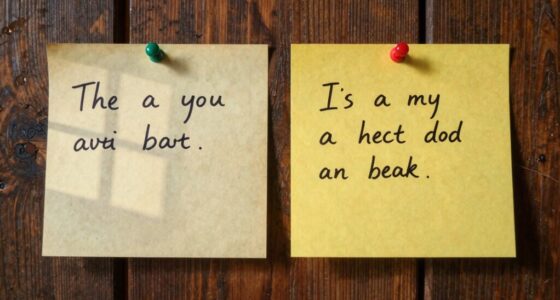 The a you
avti bavt.
I's a my
a hect dod
an beak.